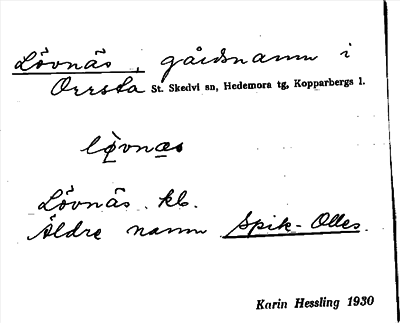 Lövnäs, gårdsnamn i
Orrsta St. Skedvi sn, Hedemora tg, Kopparbergs l.
lø̀vnæs
Lövnäs kb.
Äldre namn Spik-Olles.
Karin Hessling 1930